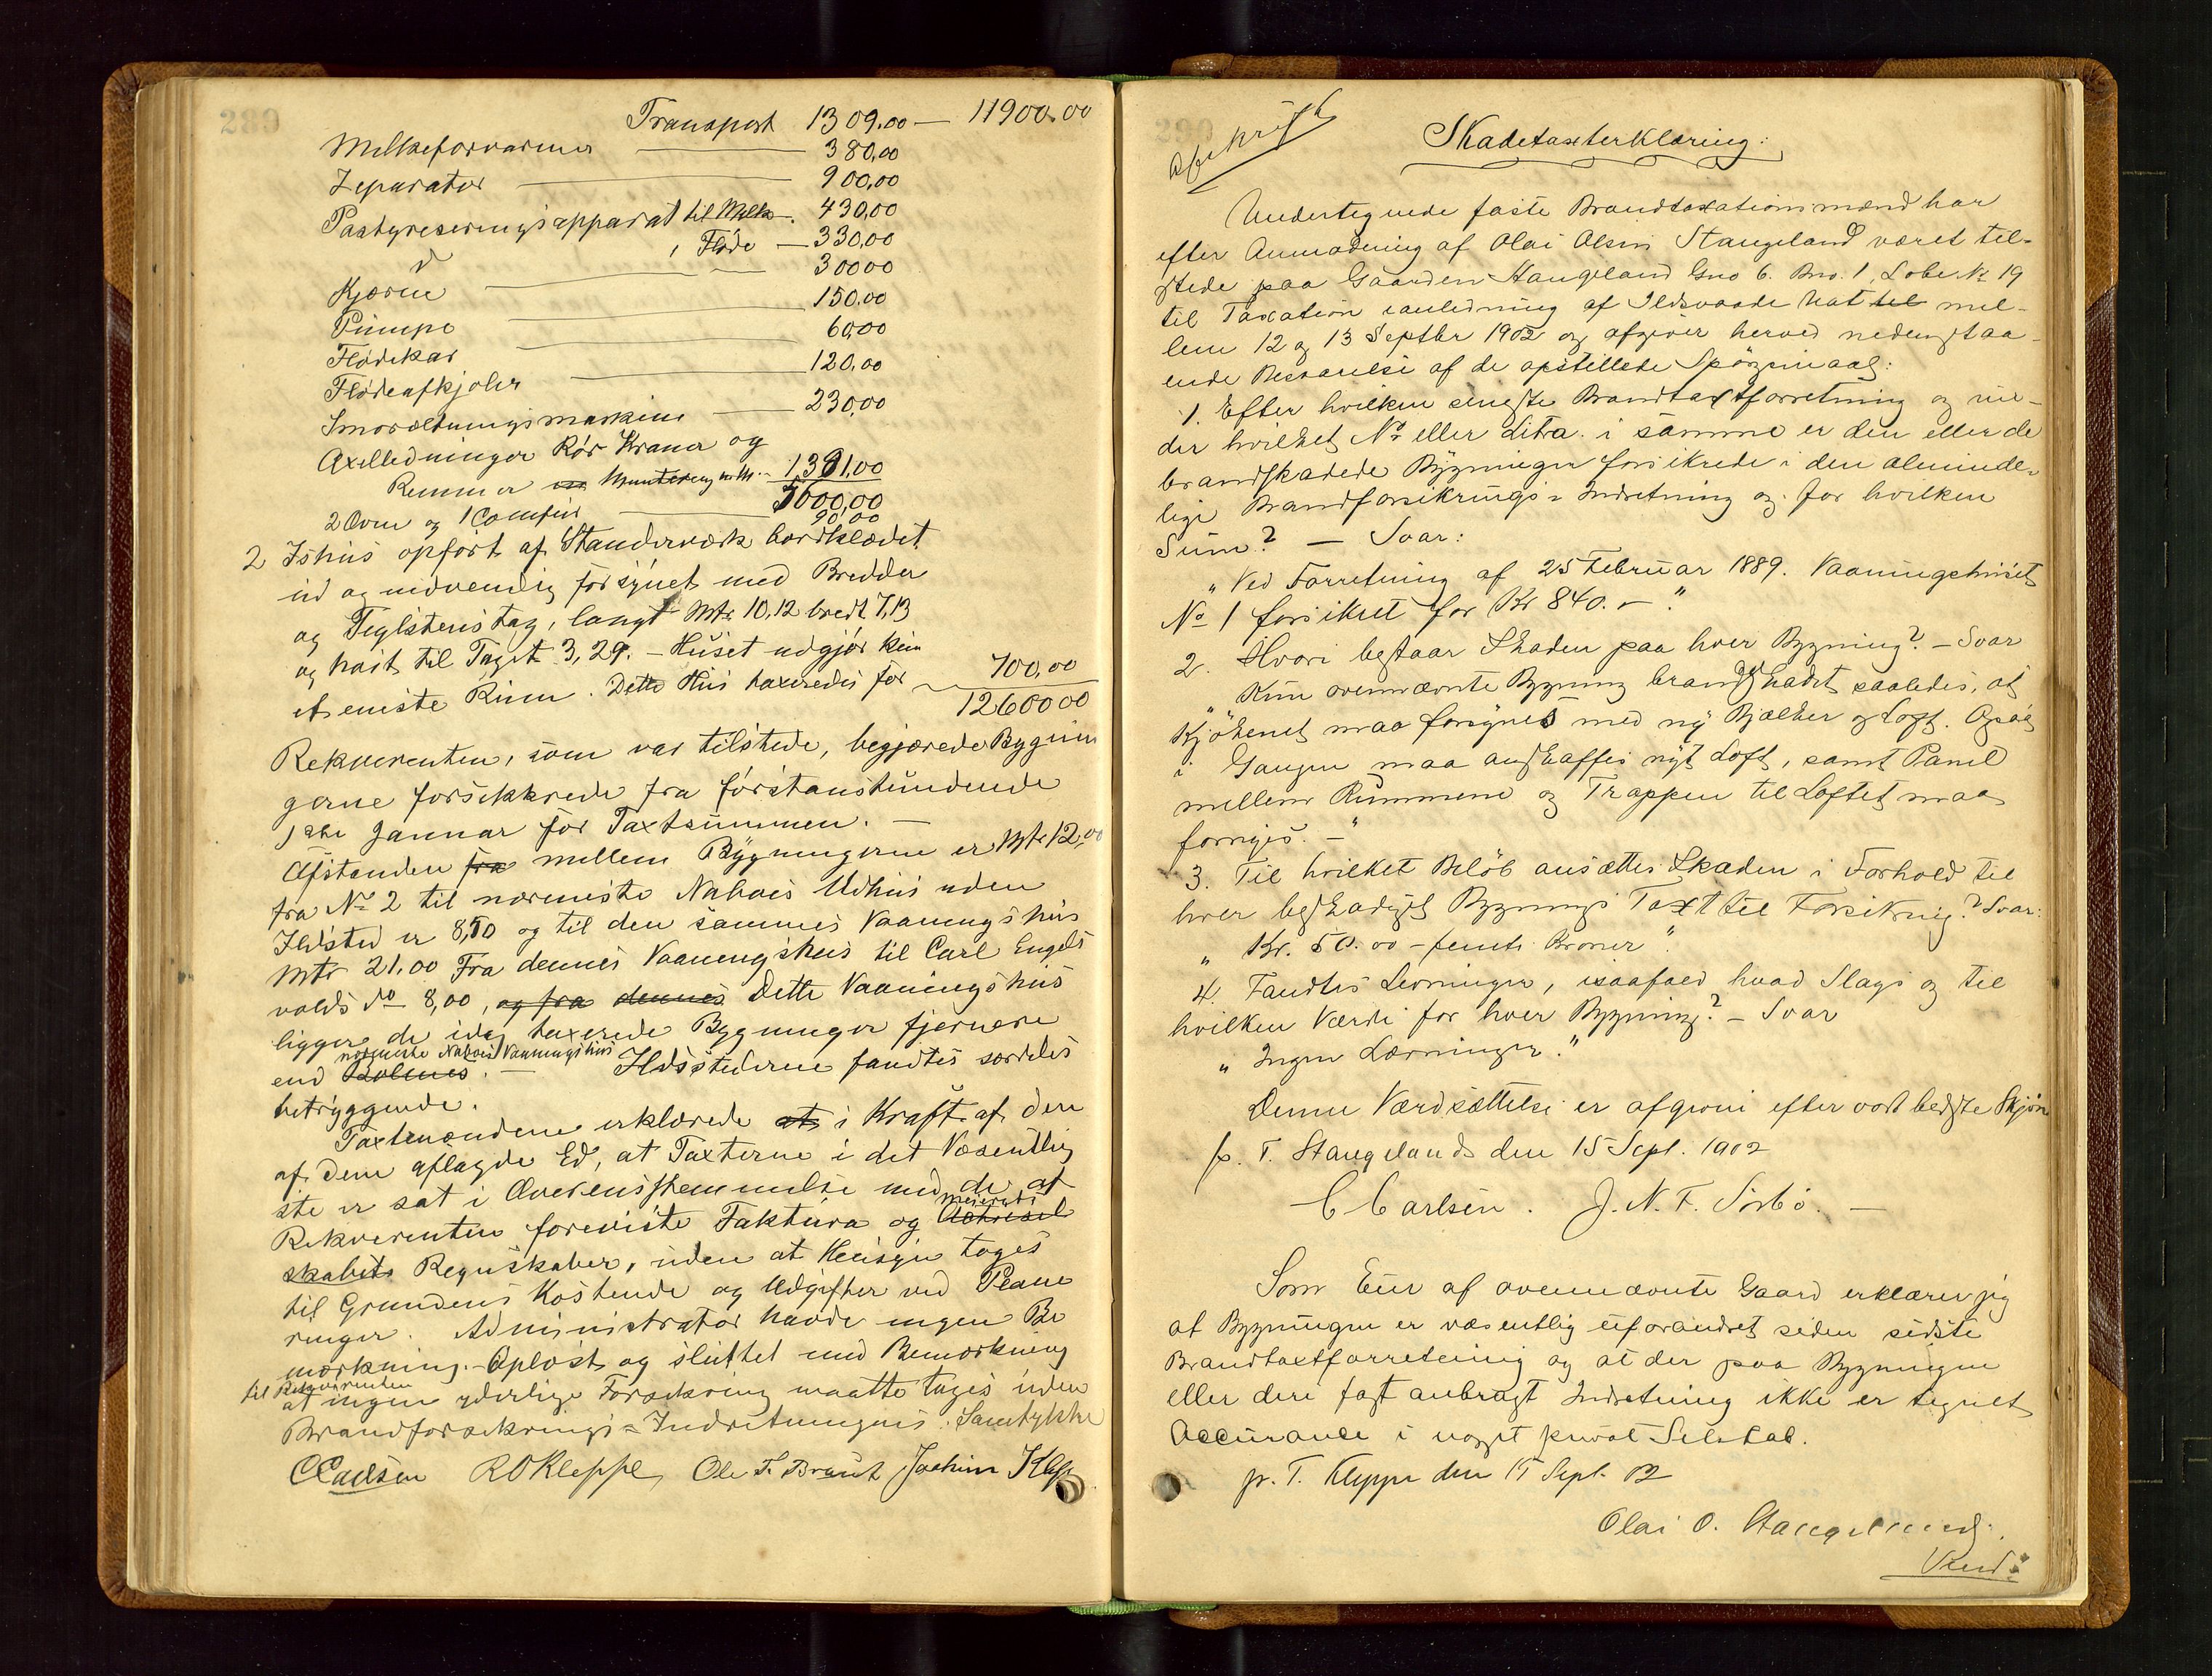 289
Transport 1309.00 — 11900.00
Melkeforvarmer — 380,00
Zeparator — 900,00
Pastyreseringsapparat til Melk — 430,00
" Fløde — 330,00
Kjærne — 300 00
Pumpe — 150,00
Flødekar — 60,00
Flødeafkjøler — 120,00
Smøræltningsmaskine — 230,00
Axelledninger Rør Kraner og
Remmer Muntering m.m. — 1,391,00
5600,00
2 Ovne og 1 Comfur — 90,00
2 Ishus opført af Standerværk bordklædet
ud og indvendig forsynet med Bredder
og Teglstenstag, langt Mtr 10,12 bredt 7,13
og høit til Taget 3,29. — Huset udgjør kun
et eneste Rum. Dette Hus taxeredes for 700,00
12600 00
Rekvirenten, som var tilstede, begjærede Bygnin
gerne forsikkrede fra førstanstundende
1ste Januar for Taxtsummen. —
Afstanden fra mellem Bygningerne er Mtr 12,00
fra No 2 til nærmeste Nabois Udhus uden
Ildsted er 8,50 og til den sammes Vaaningshus
Mtr 21.00 Fra dennes Vaaningshus til Carl Engels
volds do 8,00, og fra dennes Dette Vaaningshus
ligger de idag taxerede Bygninger fjernere
nærmeste Nabois Vaaningshus
end . — Ildsstederne fandtes særdeles
betryggende.
Taxtmændene erklærede at i Kraft af den
af dem aflagde Ed, at Taxterne i det Væsentlig
ste er sat i Overensstemmelse med de af
meieriets
Rekvirenten foreviste Faktura og
skabets Regnskaber, uden at Hensyn toges
til Grundens Kostende og Udgifter ved Plane
ringer. Administrator havde ingen Be
mærkning. — Oplæst og sluttet med Bemærkning
til Rekvirenten
at ingen yderlige Forsikring maatte tages uden
Brandforsikrings=Indretningens Samtykke
CCarlsen ROKleppe Ole T. Braut Jochim Klep
290
Afskrift
Skadetaxterklæring:
Undertegnede faste Brandtaxationsmænd har
efter Anmodning af Olai Olsen Stangeland været til-
stede paa Gaarden Stangeland Gno 6. Bno. 1, Lobe No 19
til Taxation ianledning af Ildsvaade Nat til mel-
lem 12 og 13 Septbr 1902 og afgiver herved nedenstaa-
ende Besvarelse af de opstillede Spørgsmaal:
1. Efter hvilken seneste Brandtaxtforretning og un-
der hvilket No eller Litra. i samme er den eller de
brandskadede Bygninger forsikrede i den alminde-
lige Brandforsikrings=Indretning og for hvilken
Sum? — Svar:
" Ved Forretning af 25 Februar 1889. Vaaningshuset
No 1 forsikret for Kr 840. — "
2. Hvori bestaar Skaden paa hver Bygning? — Svar
" Kun ovennævnte Bygning brandskadet saaledes, at
Kjøkenet maa forsynes med ny Bjælker og Loft. Ogsaa
i Gangen maa anskaffes nyt Loft, samt Panel
mellem Rummene og Trappen til Loftet maa
fornyes. — "
3. Til hvilket Beløb ansættes Skaden i Forhold til
hver beskadiget Bygnings Taxt til Forsikring? Svar:
" Kr. 50.00 — femti Kroner ".
4. Fandtes Levninger, isaafald hvad Slags og til
hvilken Værdi for hver Bygning? — Svar
" Ingen Levninger. "
Denne Værdsættelse er afgiven efter vort bedste Skjøn
p. T. Stangeland den 15 Sept. 1902
C Carlsen. J. N. F. Sirbø. —
Som Eier af ovennævnte Gaard erklærer jeg
at Bygningen er væsentlig uforandret siden sidste
Brandtaxtforretning og at der paa Bygningen
eller deri fast anbragt Indretning ikke er tegnet
Accurance i noget privat Selskab.
p. T. Kleppe den 15 Sept. 02
Olai O. Stangeland.